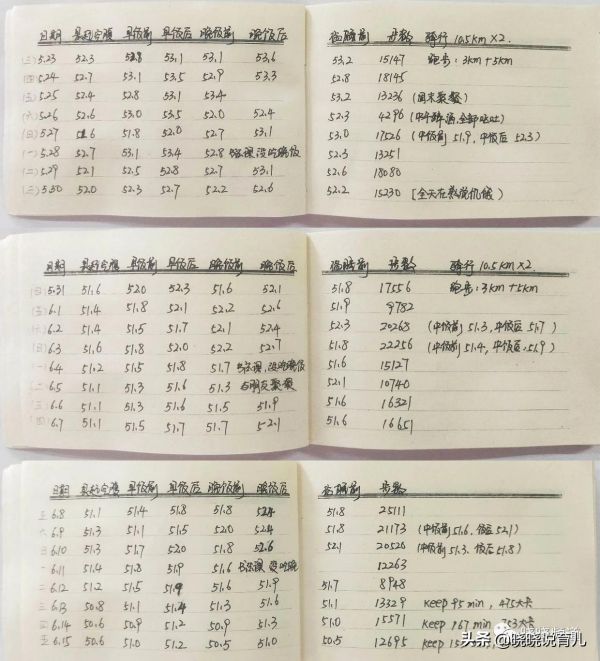 日期 晨起空腹 早饭前 早饭后 晚饭前 晚饭后 临睡前 步数 骑行 10.5km×2
(三) 5.23 52.3 52.8 53.1 53.1 53.6 53.2 15147 跑步:3km+5km
(四) 5.24 52.7 53.1 53.5 52.9 53.3 52.8 18145
(五) 5.25 52.4 52.8 53.1 53.4 53.2 13236 (周末聚餐)
(六) 5.26 52.6 53.0 53.5 52.0 52.4 52.3 4296
(日) 5.27 51.8 52.0 52.7 53.1 53.0 17526 (中饭前 51.9, 中饭后 52.3)
(一) 5.28 52.7 53.1 53.4 52.8 没吃晚饭 52.3 13251
(二) 5.29 52.1 52.5 52.8 52.7 53.1 52.6 18080
(三) 5.30 52.0 52.3 52.7 52.2 52.6 52.2 15230
日期 晨起空腹 早饭前 早饭后 晚饭前 晚饭后 临睡前 步数 骑行 10.5km×2
(四) 5.31 51.6 52.0 52.3 51.6 52.1 51.8 17556 跑步:3km+5km
(五) 6.1 51.4 51.8 52.1 52.2 52.6 51.9 9782
(六) 6.2 51.4 51.5 51.7 52.1 52.4 52.3 20268 (中饭前 51.3, 中饭后 51.7)
(日) 6.3 51.6 51.8 52.0 52.2 52.7 51.8 22256 (中饭前 51.4, 中饭后 51.9)
(一) 6.4 51.2 51.5 51.8 51.7 没吃晚饭 51.6 15127
(二) 6.5 51.1 51.3 51.6 51.3 与朋友聚餐 52.1 10740
(三) 6.6 51.1 51.3 51.6 51.5 51.9 51.6 16321
(四) 6.7 51.1 51.5 51.7 51.7 52.1 51.6 16651
日期 晨起空腹 早饭前 早饭后 晚饭前 晚饭后 临睡前 步数
五 6.8 51.1 51.4 51.8 51.8 52.4 51.8 25111
六 6.9 51.3 51.1 51.5 52.0 52.4 51.8 21173 (中饭前 51.6, 饭后 52.1)
日 6.10 51.3 51.7 52.0 51.8 52.6 52.1 20520 (中饭前 51.3, 饭后 51.8)
一 6.11 51.4 51.8 51.9 51.6 12263
二 6.12 51.2 51.5 51.9 51.6 51.9 51.7 8948
三 6.13 50.8 51.1 51.4 51.3 51.6 51.1 13329 keep 95 min, 475大卡
四 6.14 50.6 50.9 51.2 50.9 51.3 51.0 15571 keep 167 min
五 6.15 50.6 51.0 51.2 50.5 51.0 50.5 12695 keep
头条 @晓晓说育儿